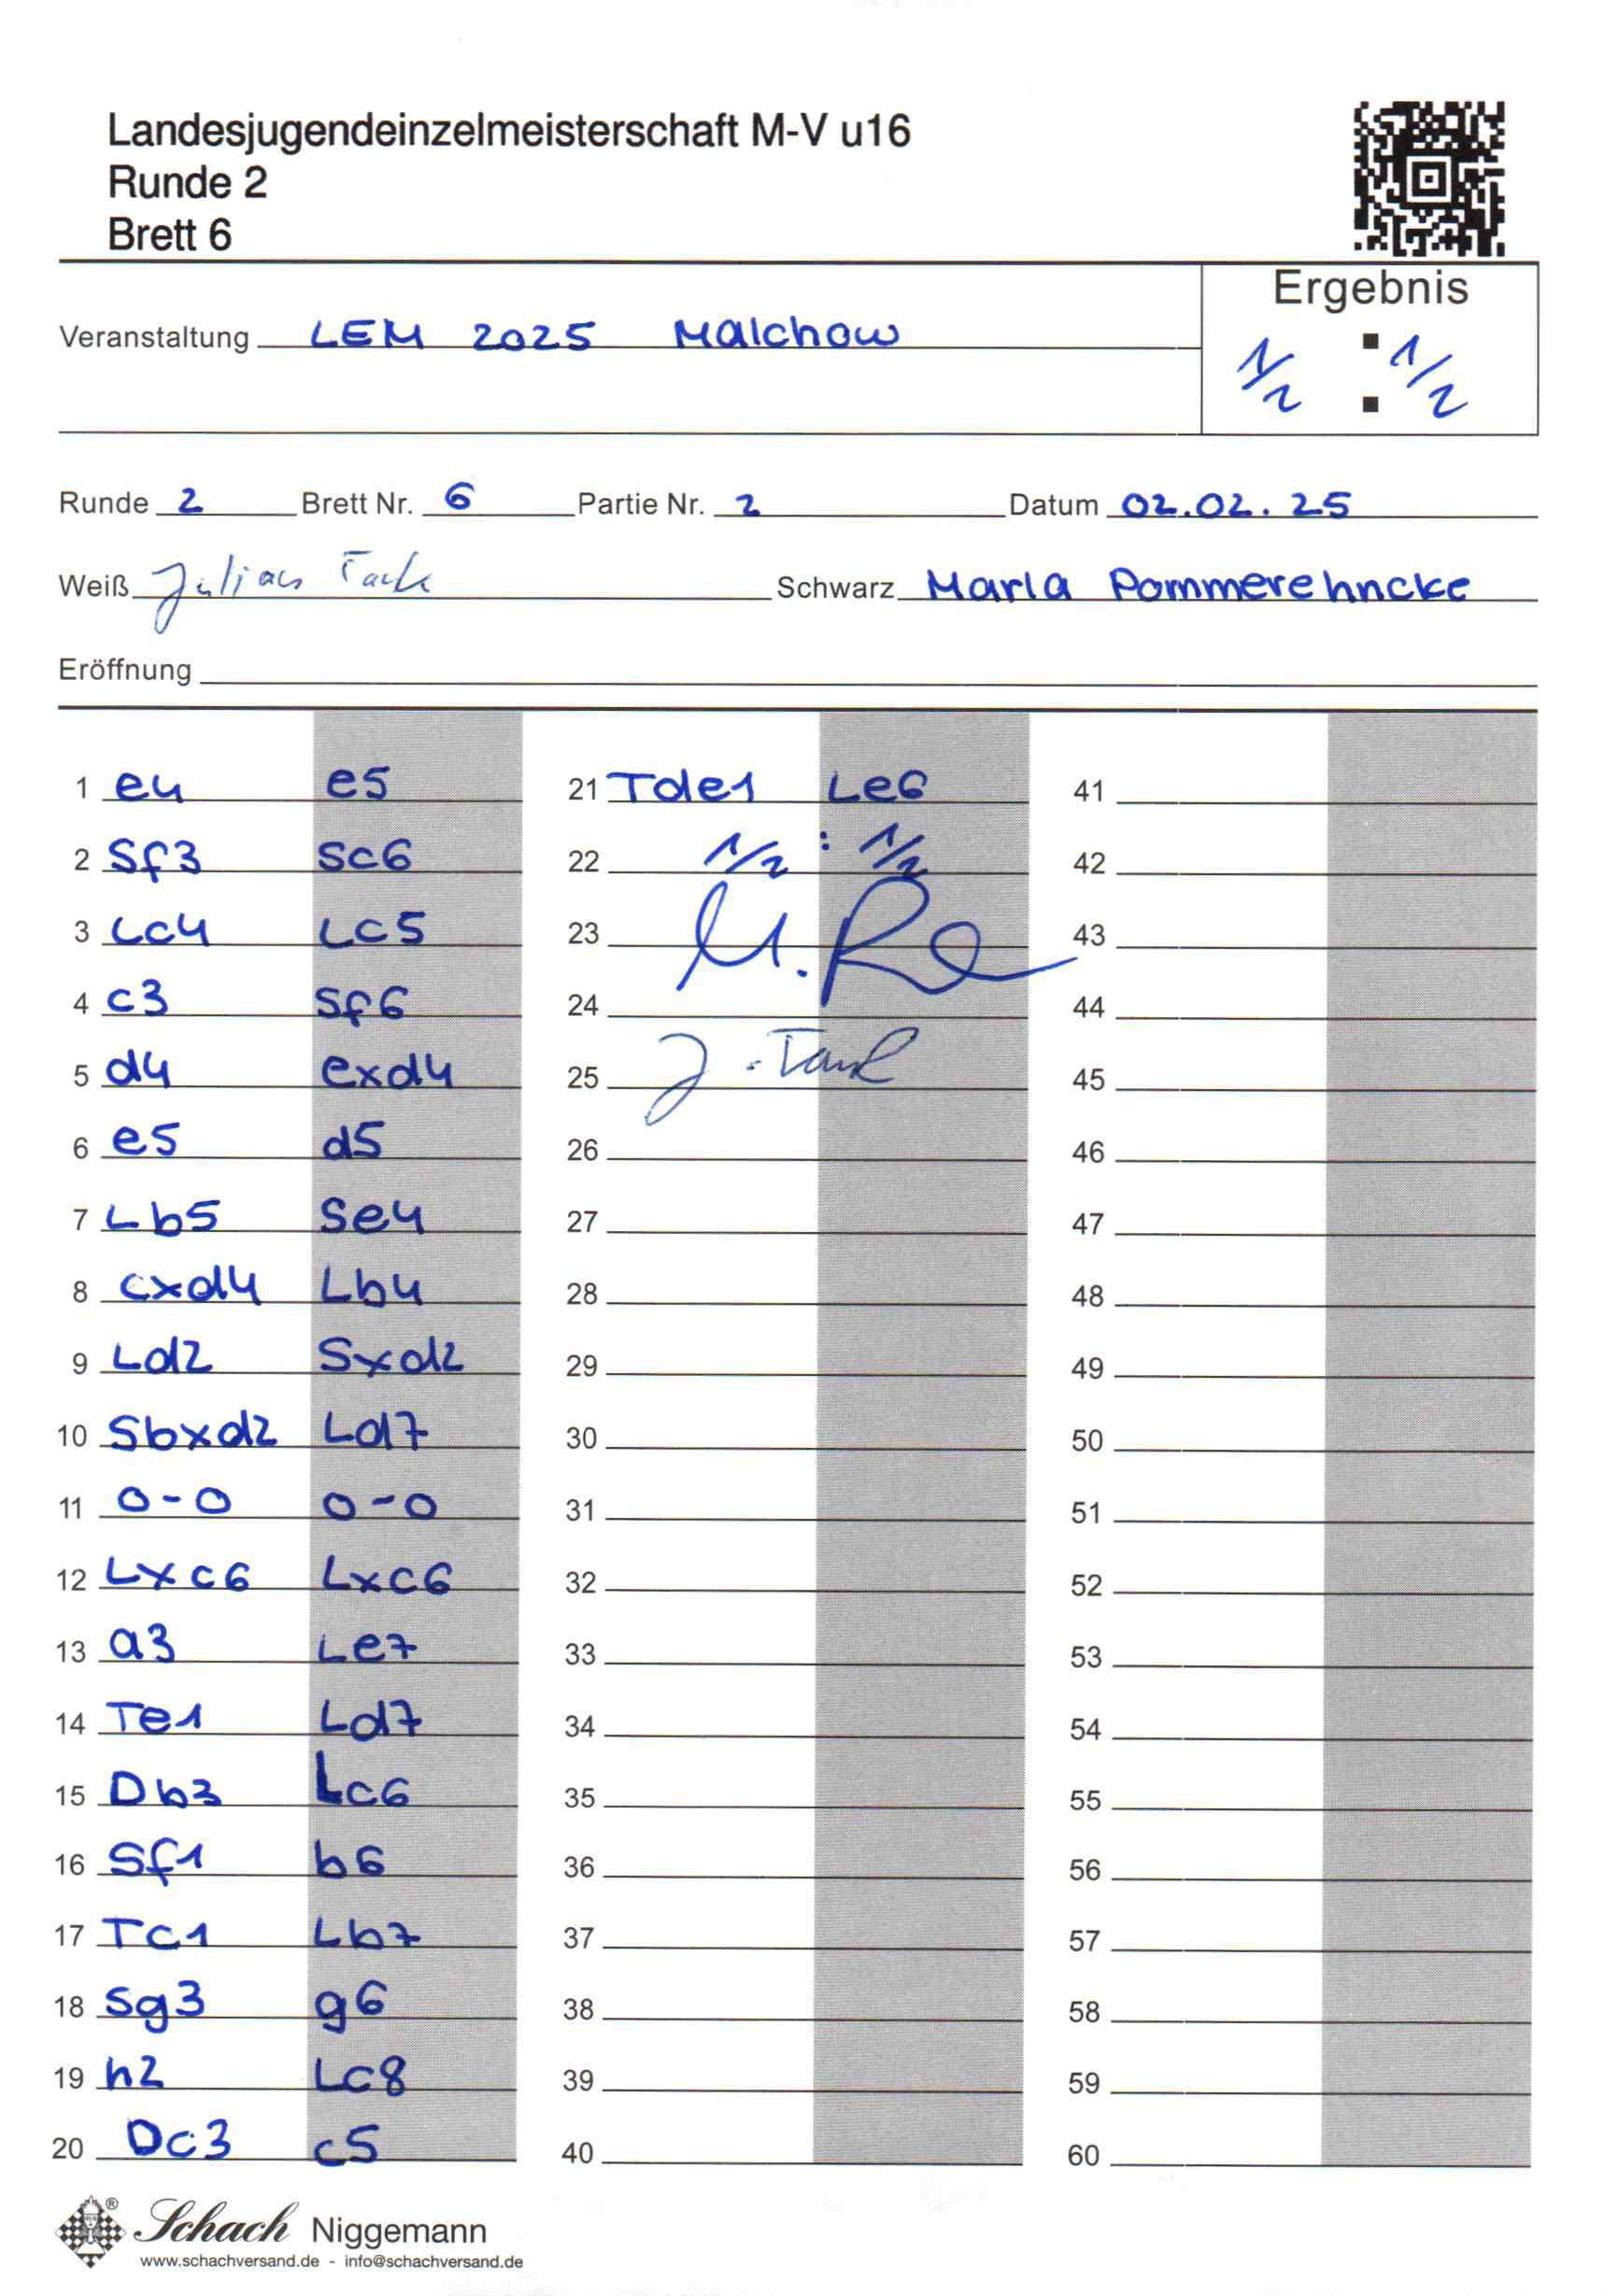 Landesjugendeinzelmeisterschaft M-V u16
Runde 2
Brett 6
Ergebnis
Veranstaltung LEM 2025 Malchow
1/2 : 1/2
Runde 2 Brett Nr. 6 Partie Nr. 2 Datum 02.02.25
Weiß Julian Schwarz Marla Pommerehncke
Eröffnung
1 e4 e5
2 Sf3 Sc6
3 Lc4 Lc5
4 c3 Sf6
5 d4 exd4
6 e5 d5
7 Lb5 Se4
8 cxd4 Lb4
9 Ld2 Sxd2
10 Sbxd2 Ld7
11 0-0 0-0
12 Lxc6 Lxc6
13 a3 Le7
14 Te1 Ld7
15 Db3 Lc6
16 Sf1 b6
17 Tc1 Lb7
18 Sg3 g6
19 h2 Lc8
20 Dc3 c5
21 Tde1 Le6
22 1/2 : 1/2
23
24
25
26
27
28
29
30
31
32
33
34
35
36
37
38
39
40
41
42
43
44
45
46
47
48
49
50
51
52
53
54
55
56
57
58
59
60
Schach Niggemann
www.schachversand.de - info@schachversand.de